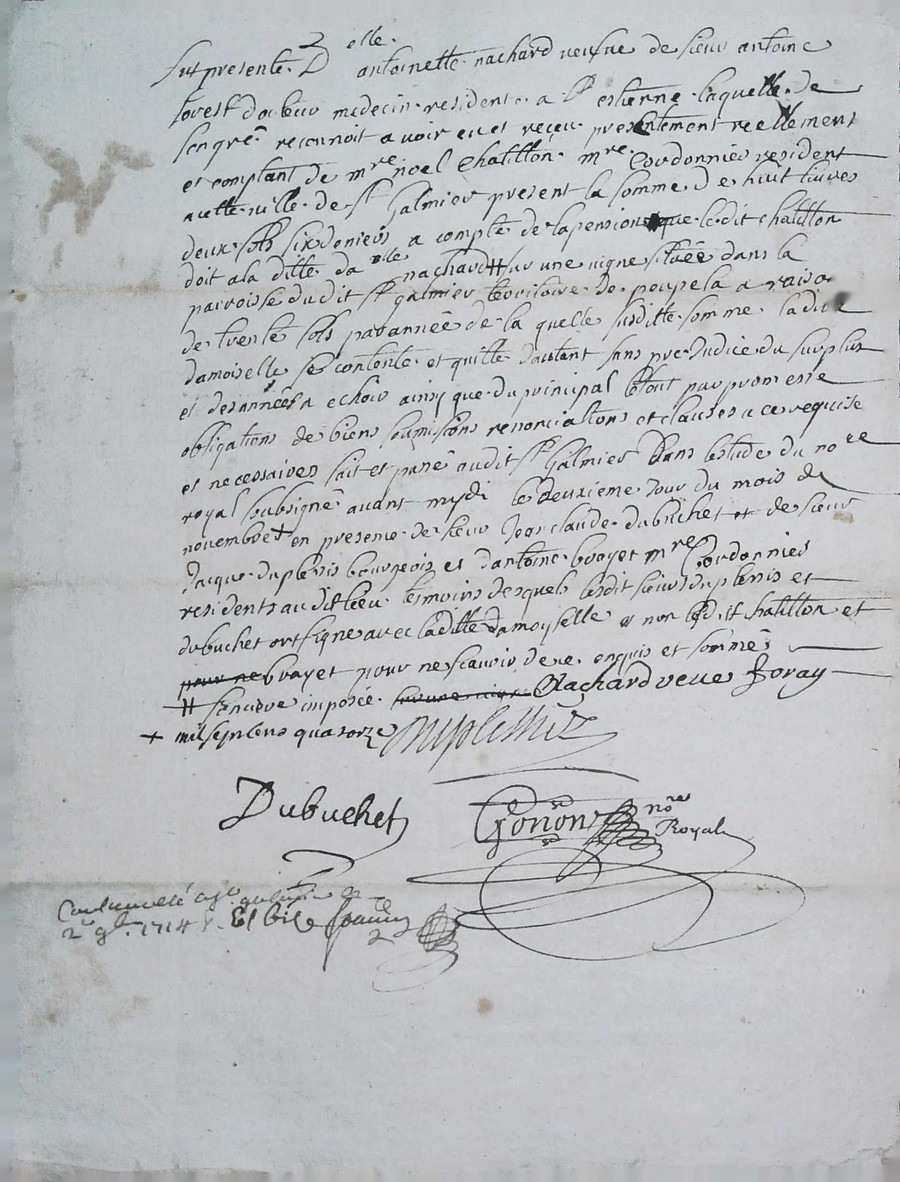 fut presente Delle antoinette nachard veufve de sieur antoine
forest docteur medecin residente a St estienne laquelle de
son gré reconnoit avoir eu et receu presentement reellement
et comptant de mre noel Chatillon mre Cordonnier resident
en cette ville de St Galmier present la somme de huit livres
deux sols six deniers a compte de la pension que ledit chatillon
doit a la ditte dalle nachard # sur une vigne sitüée dans la
parroisse dudit St galmier territoire de poupela a raison
de trente sols par année de la quelle susditte somme ladite
damoiselle se contente et quitte d'autant sans prejudice du surplus
et des années a echoir ainsy que du principal le tout par promesse
obligations de biens soumissions renonciations et clauses a ce requise
et necessaires fait et passé audit St Galmier dans lestude du nore
royal soubsigné avant mydi le deuxieme Jour du mois de
novembre + en presence de sieur Jean claude dubuchet et de sieur
Jacque duplessis bourgeois et d'antoine brayet mre Cordonnier
residents audit lieu temoins desquels lesdit sieurs duplessis et
dubuchet ont signe avec laditte damoyselle et non ledit chatillon et
pour ne brayet pour ne scavoir de ce enquis et sommés
# fonciere imposée sur une vigne Nachard veve Foray
+ mil sept cens quatorze Duplessis
Dubuchet Gonon nore
Royal
Controllé a St galmier le
2e 9bre 1714